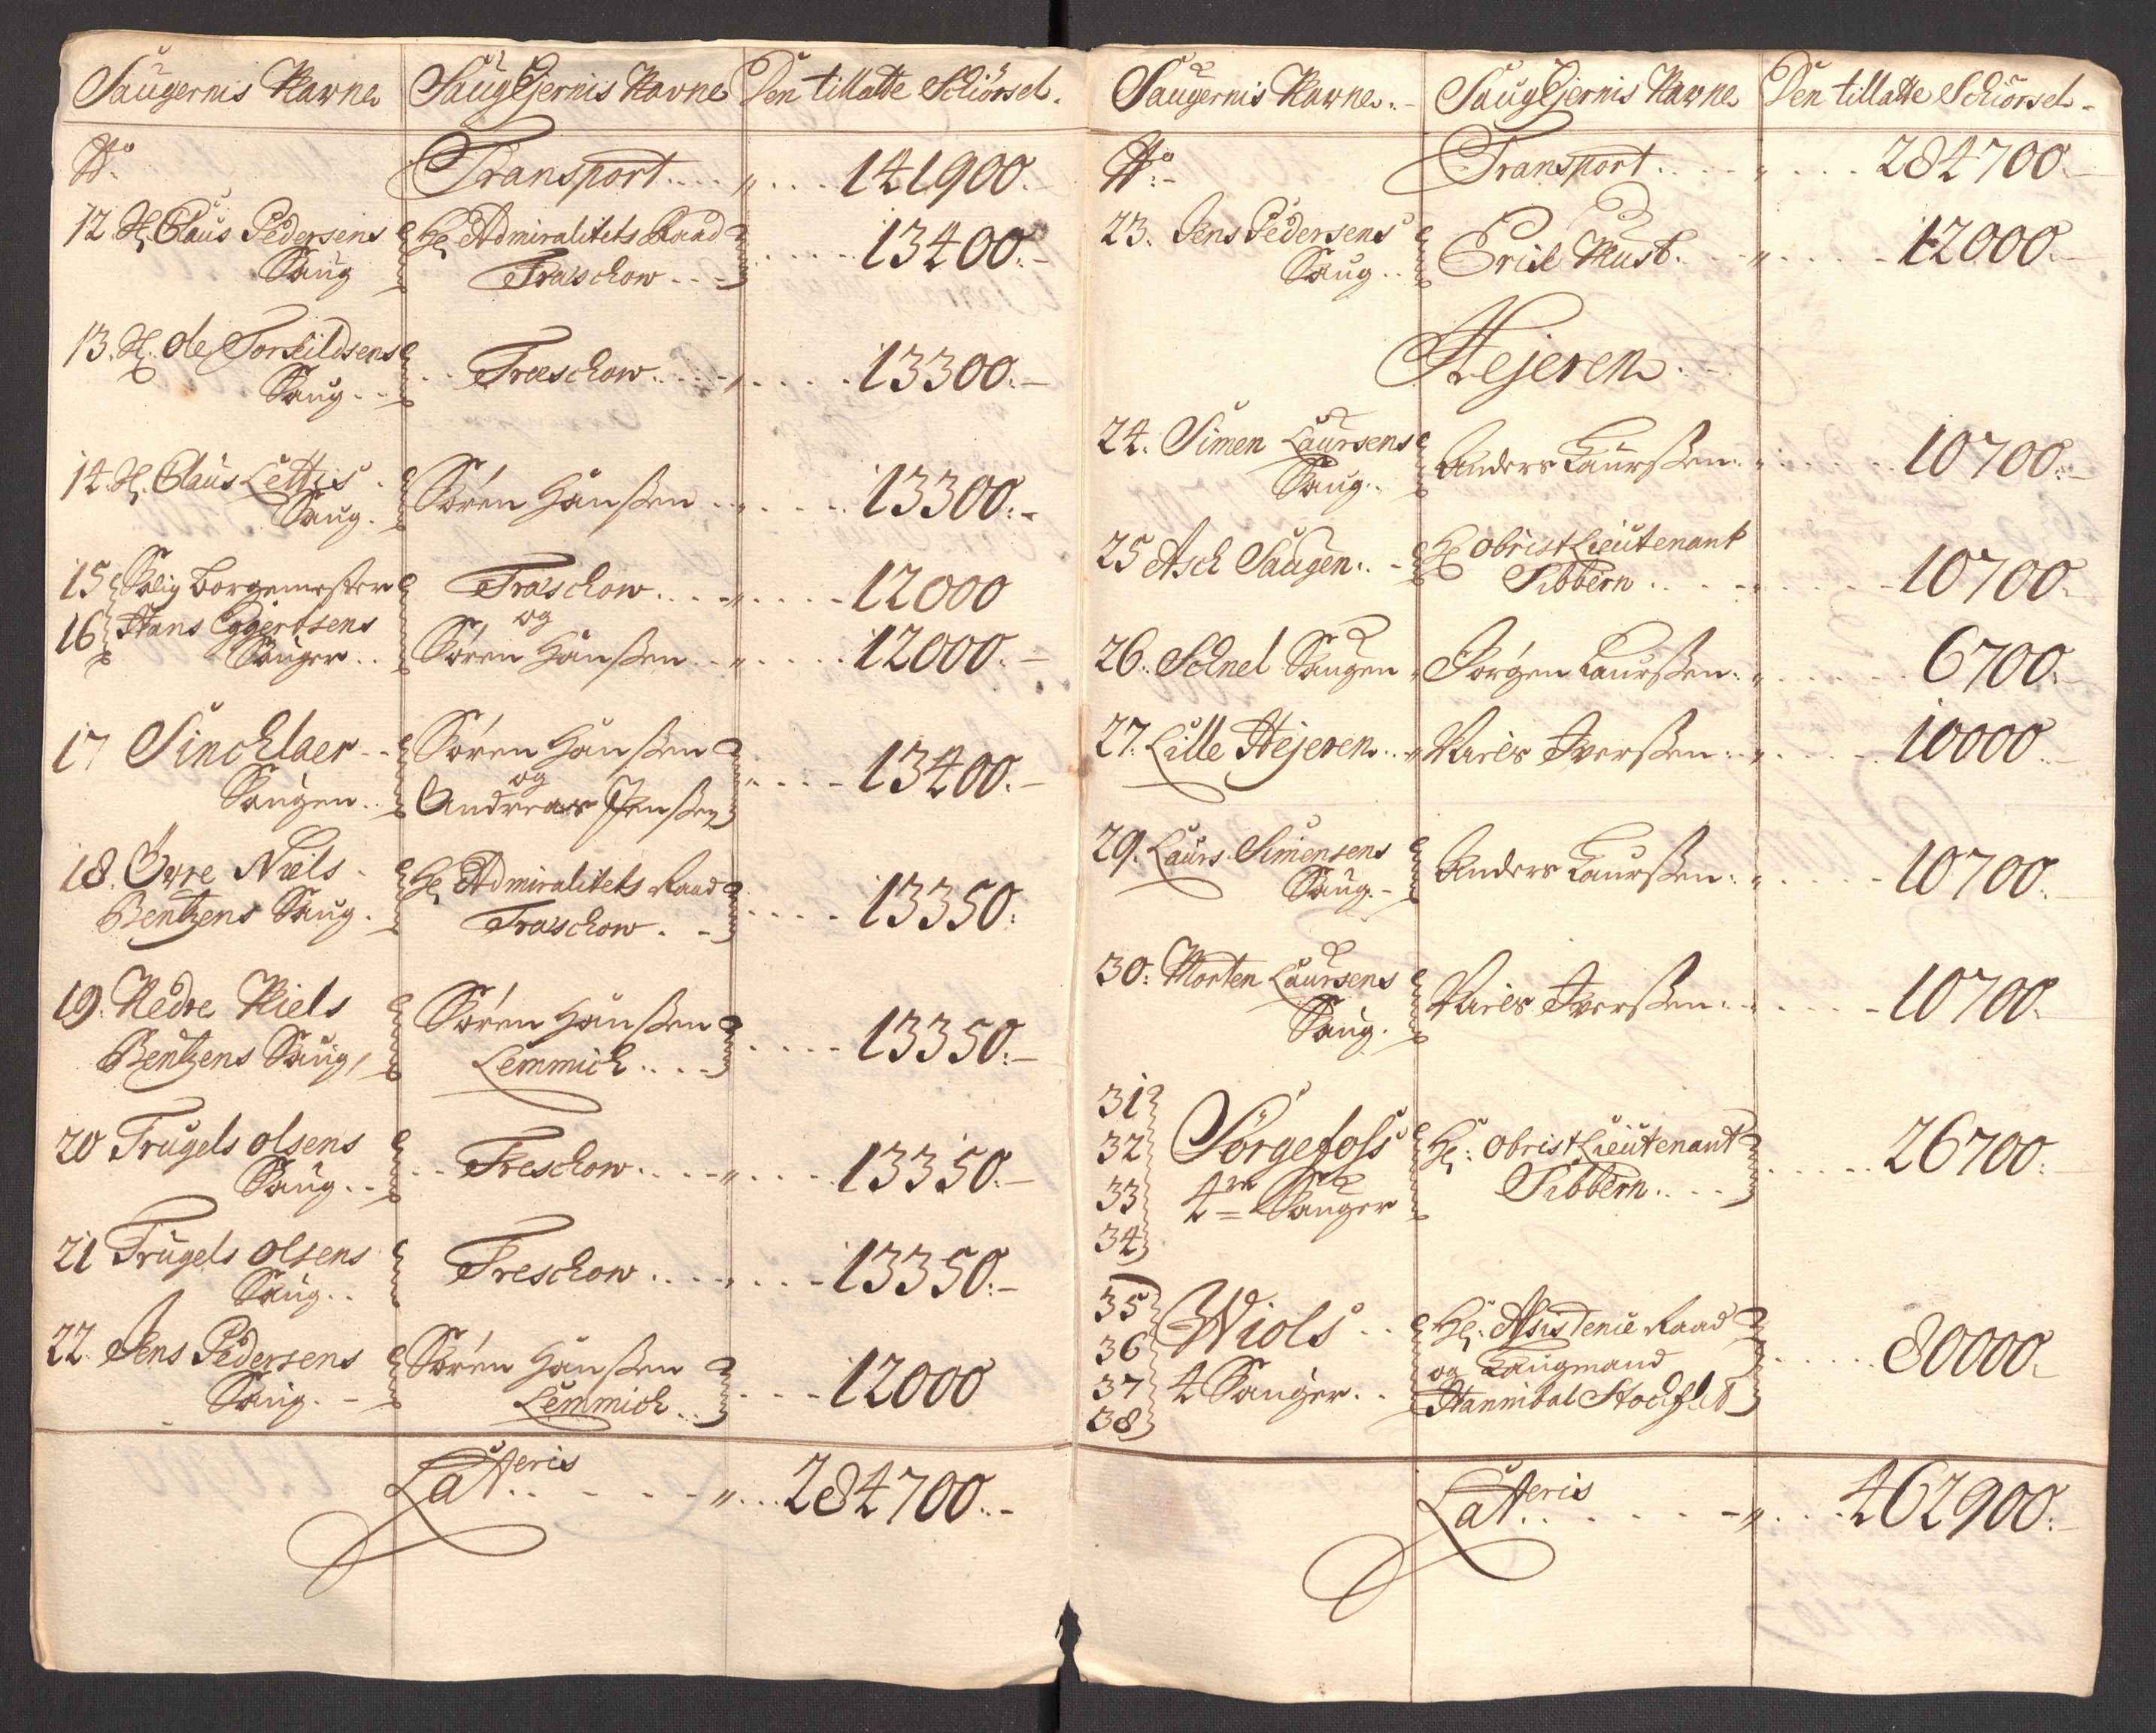 Saugernis Navne Saug Ejernis Navne Den tillatte Schiörsel.
No. Transport.... 141900.-
12. Hr. Claus Pedersens Saug Hr Admiralitets Raad Træschow... 13400.-
13. Hr. Ole Torkildsens Saug.. Træschow.... 13300.-
14. Hr. Claus Lettis Saug. Søren Hansßen.. 13300.-
15 Salig borgemester Træschow.... 12000
og
16 Hans Eggertsens Sauger.. Søren Hansßen.. 12000.-
17 Sinchlaer.. Saugen.. Søren Hansßen og Andreas Jensßen 13400.-
18. Övre Niels Bentzens Saug. Hr Admiralitets Raad Træschow.. 13350.
19. Nedre Niels Bentzens Saug, Søren Hansßen Lemmich.... 13350.-
20 Trugels olsens Saug.. Treschow.... 13350.-
21 Trugels olsens Saug.. Treschow.... 13350.-
22. Jens Pedersens Saug.- Søren Hansßen Lemmich.. 12000
Latteris.. 284700.-
Saugernis Navne.- Saug Ejernis Navne Den tillatte Schiörsel-
No.- Transport.... 284700.-
23. Jens Pedersens Saug.. Erich Must.. 12000.-
Hejeren.-
24. Simen Laursens Saug.. Anders Laursßen.. 10700.-
25 Asch Saugen.. Hr Obrist Lieutenant Sibbern.... 10700.
26. Schnel Saugen Jørgen Laursßen.. 6700.
27. Lille Hejeren.. Niels Iversßen.. 10000.-
29. Laurs. Simensens Saug.- Anders Laursßen.. 10700.-
30. Morten Laursens Saug. Niels Iversßen.. 10700.-
31
32 Sörgefoss Hr: Obrist Lieutenant 26700.-
33 4re Sauger Sibbern....
34
35 Wiols.. Hr: Assistenie Raad
36 og Laugmand 80000.-
37 4 Sauger.. Hannibal Stochflet
38
Latteris.. 462900.-